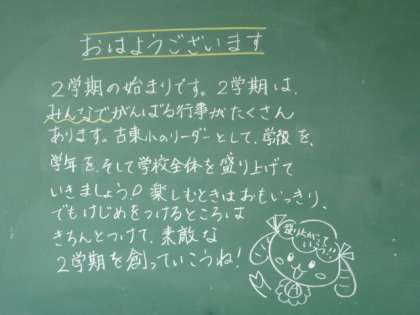 おはようございます
2学期の始まりです。2学期は、
みんなでがんばる行事がたくさん
あります。古東小のリーダーとして、学級を、
学年を、そして学校全体を盛り上げて
いきましょう♪楽しむときはおもいっきり、
でもけじめをつけるところは
きちんとつけて、素敵な
2学期を創っていこうね!
盛り上がって
いこう!!